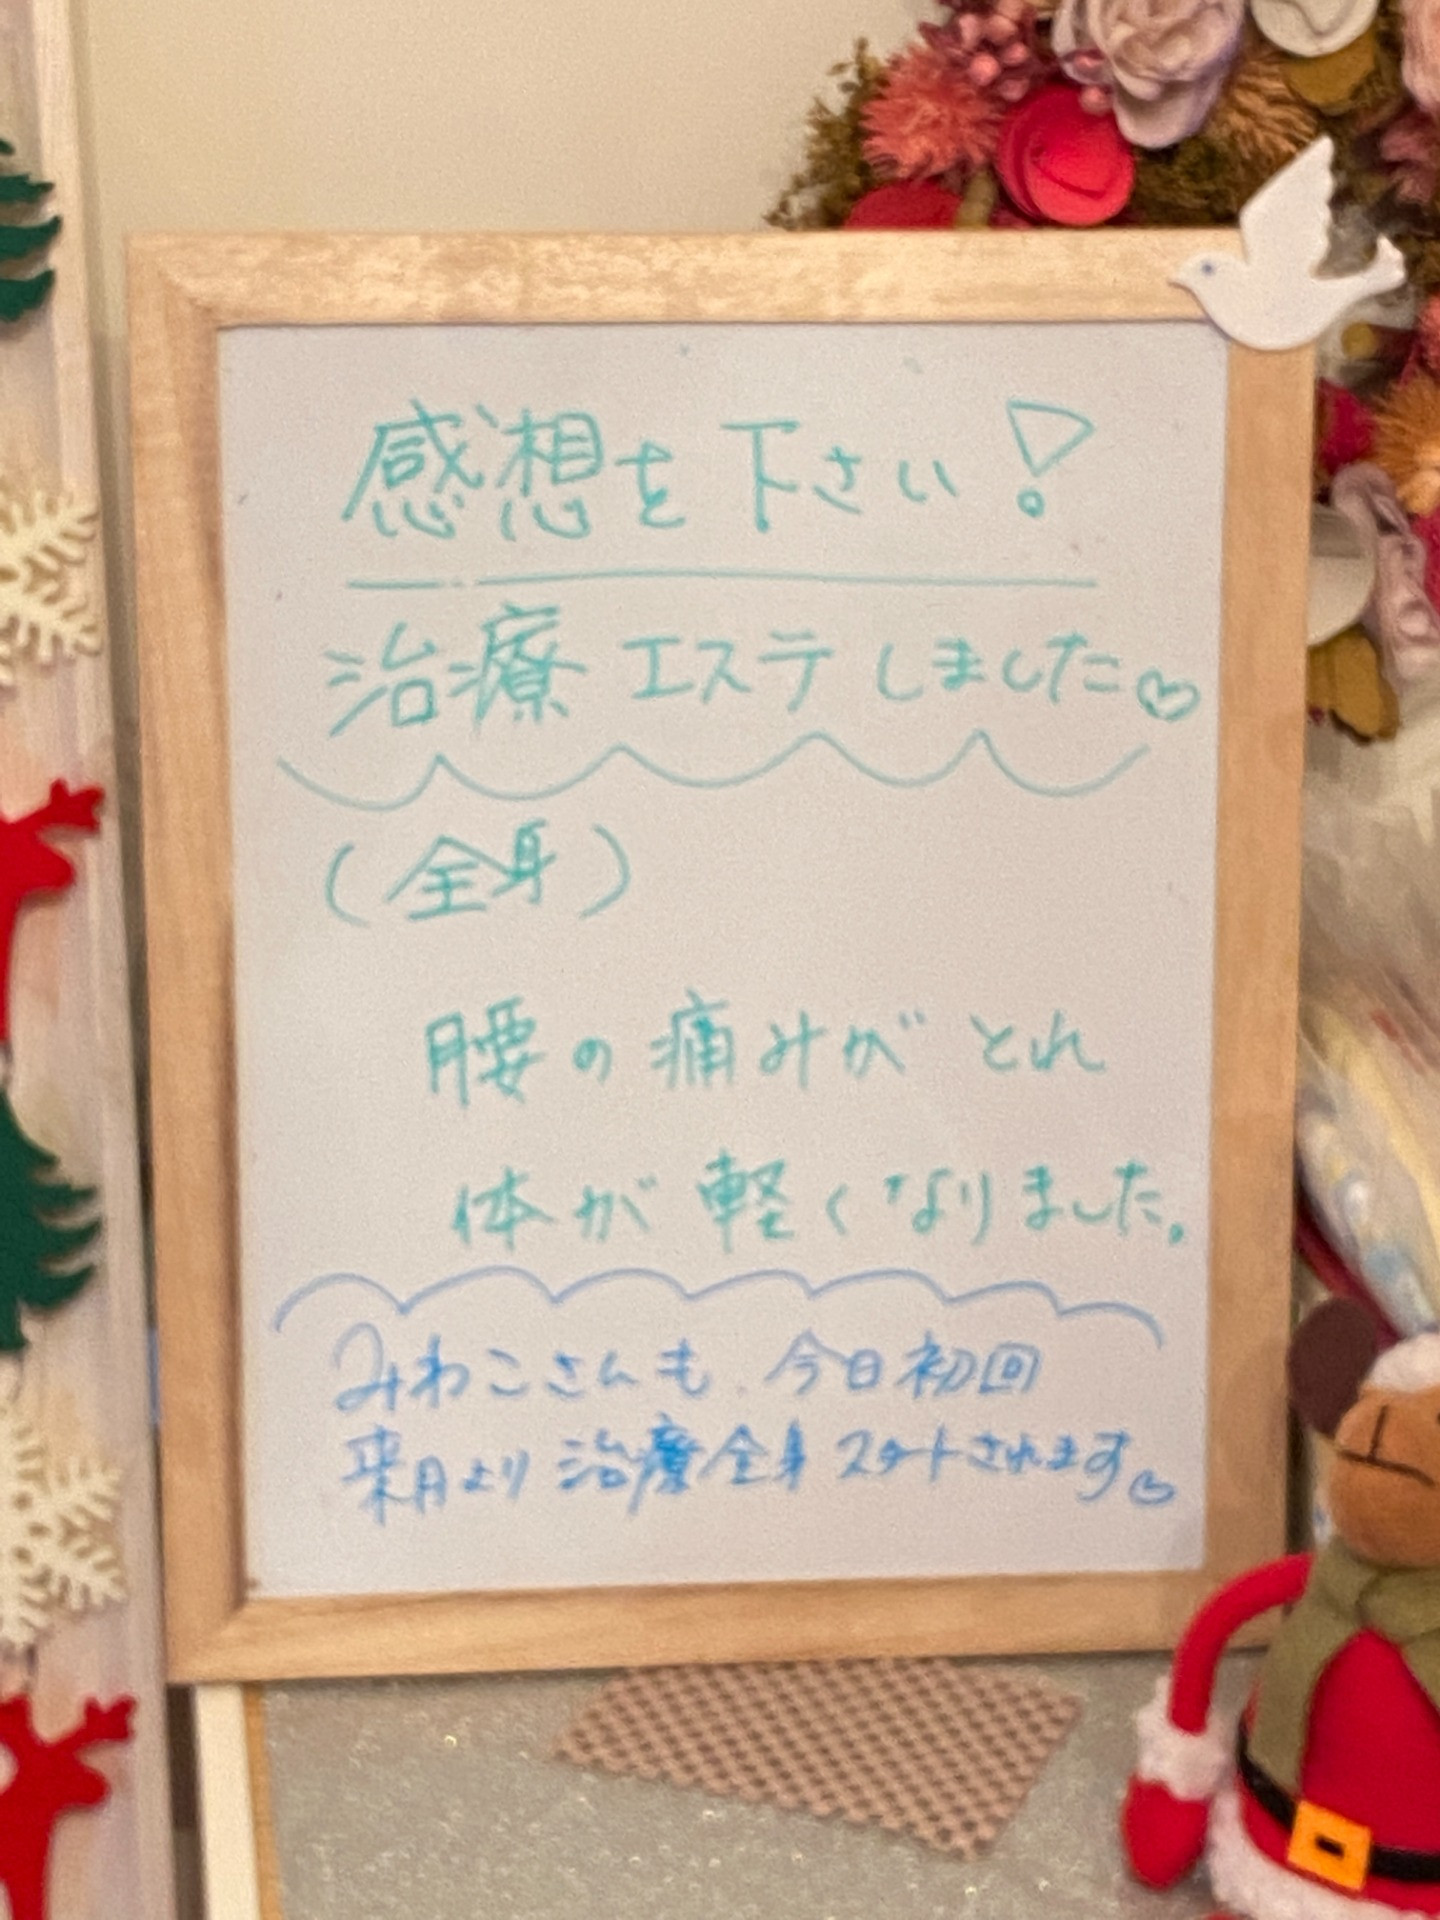 感想を下さい!
治療エステしました♡
(全身)
腰の痛みがとれ
体が軽くなりました。
みわこさんも、今日初回
来月より治療全身スタートされます♡